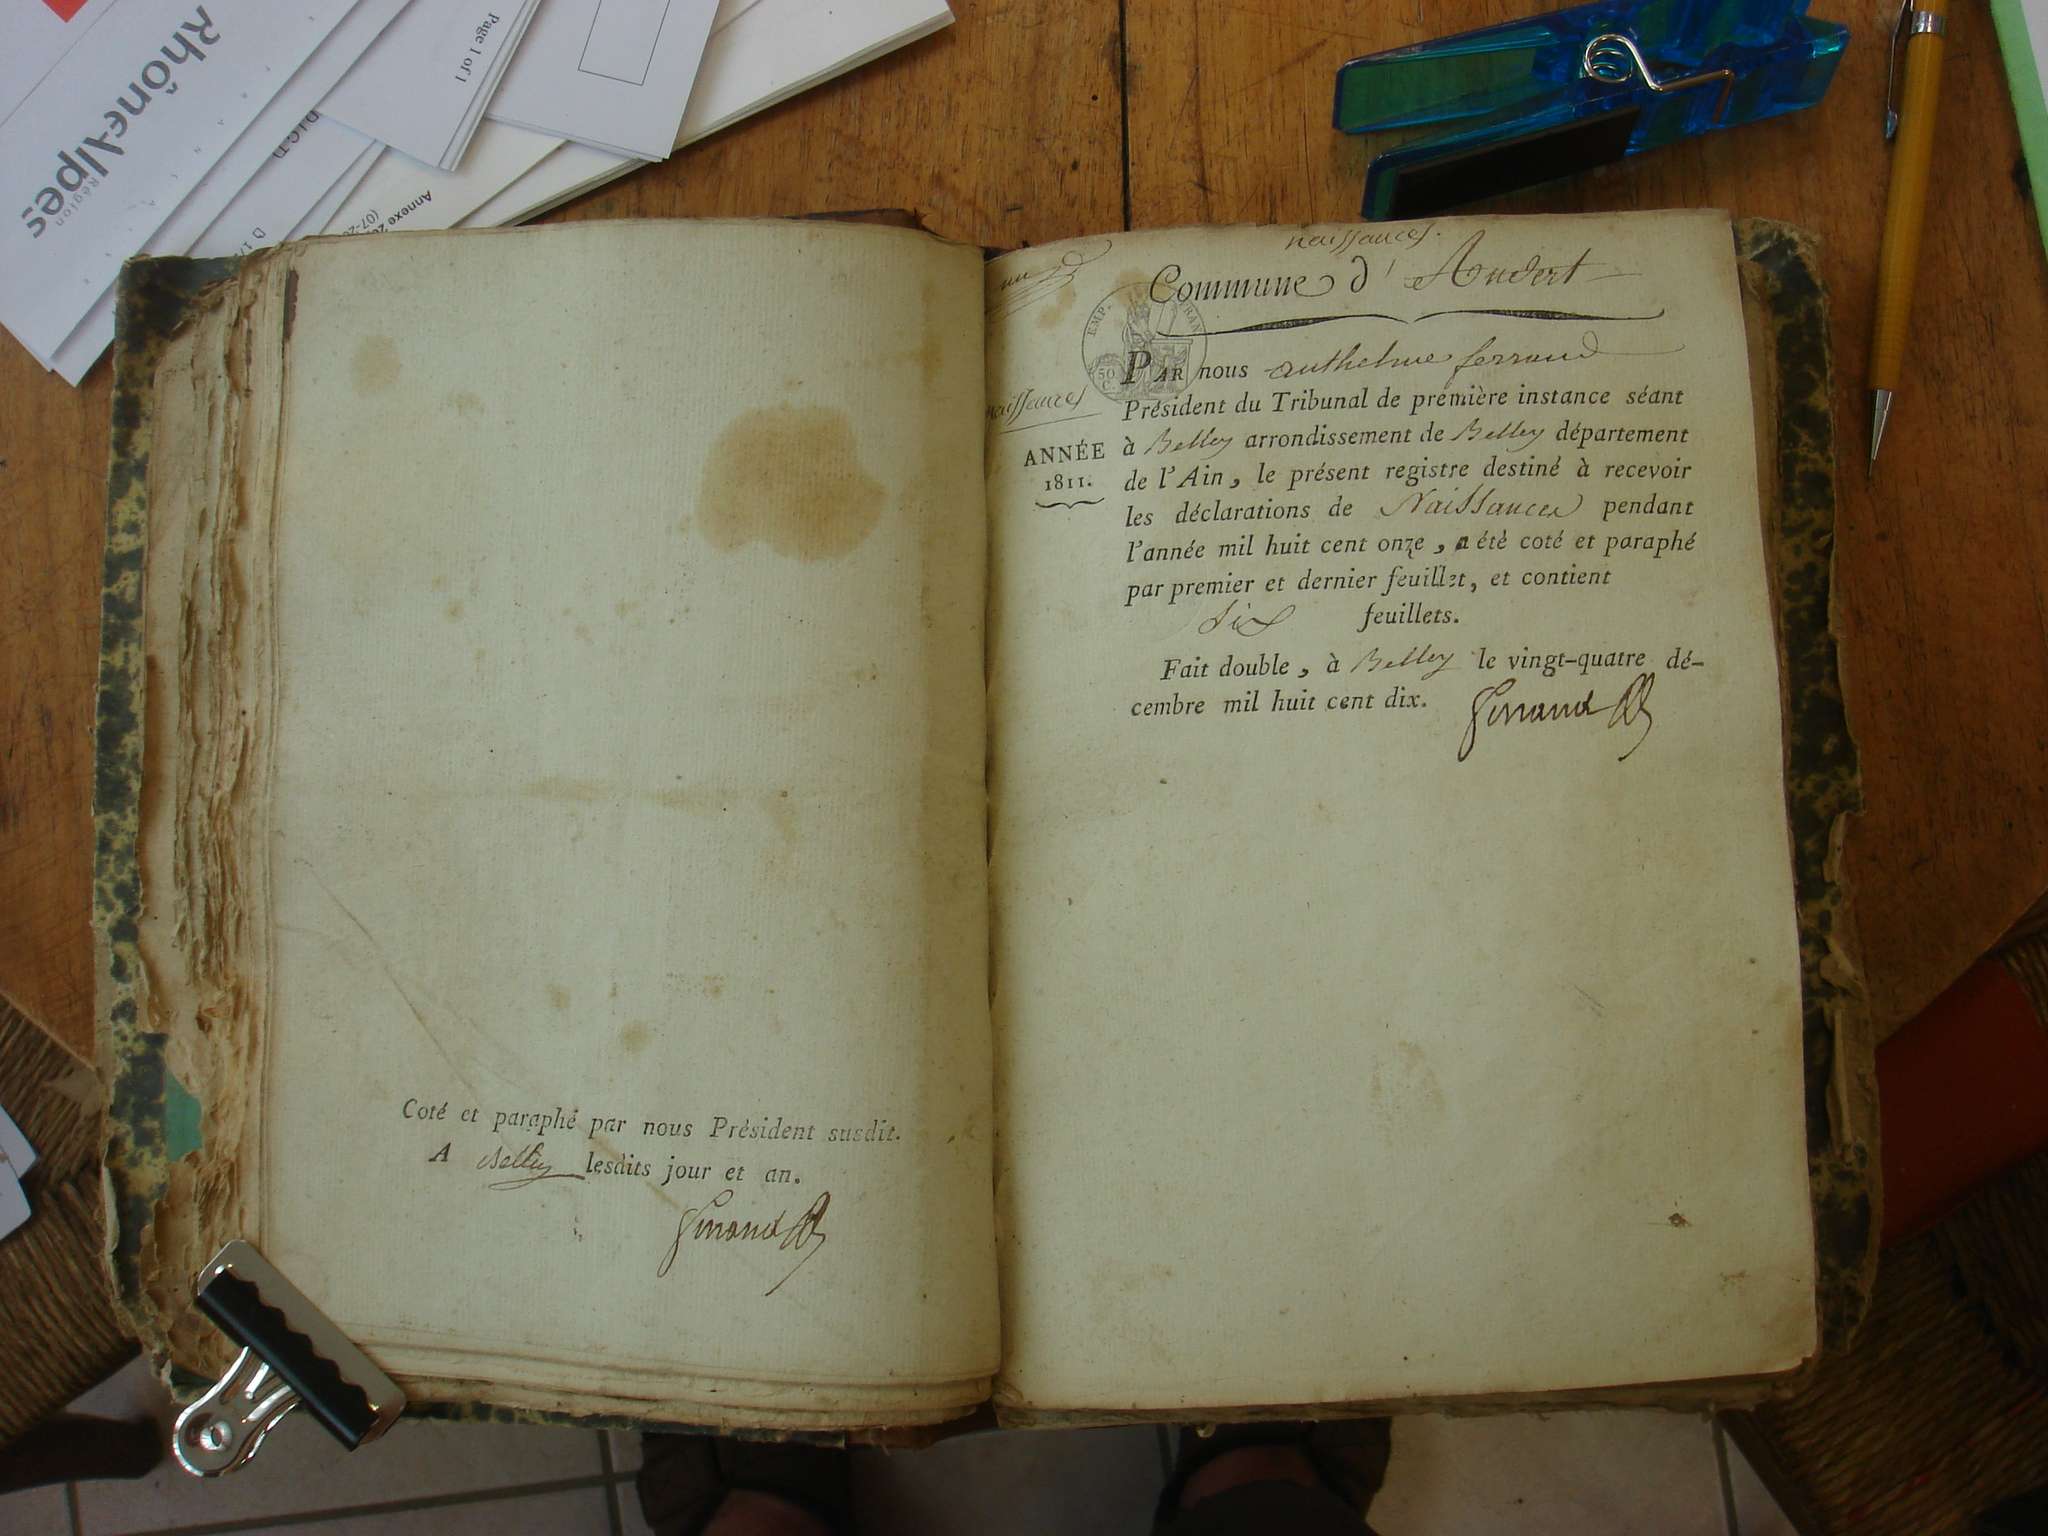 Rhône-Alpes
Région
Page 1 of 1
D.I.C.D
Annexe
(07-
Coté et paraphé par nous Président susdit.
A Belley lesdits jour et an.
Ferrand
naissances.
Commune d'Andert
EMP. FRAN
50
C.
naissances
ANNÉE
1811.
PAR nous anthelme ferrand
Président du Tribunal de première instance séant
à Belley arrondissement de Belley département
de l'Ain, le présent registre destiné à recevoir
les déclarations de Naissances pendant
l'année mil huit cent onze, a été coté et paraphé
par premier et dernier feuillet, et contient
six feuillets.
Fait double, à Belley le vingt-quatre dé-
cembre mil huit cent dix.
Ferrand